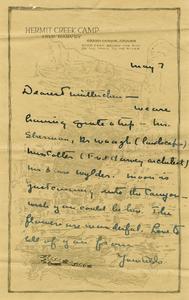 HERMIT CREEK CAMP
FRED HARVEY
GRAND CANYON, ARIZONA
May 7
Dearest
we are
having quite a trip - Mr.
Sherman, Dr Waugh (landscape)
Miss Colter (Fred Harvey architect)
Mr & Mrs Wylder. Moon is
just coming into the Canyon -
wish you could be here. The
flowers are wonderful. Love to
all of you from